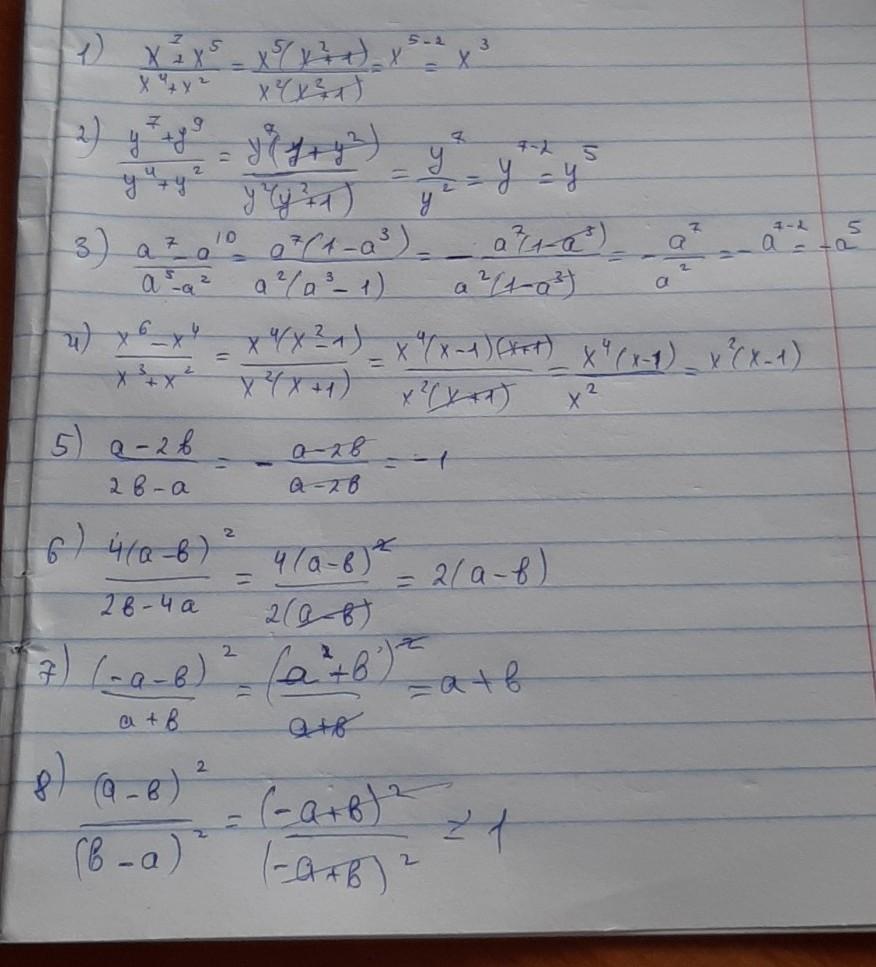 1) (x⁷+x⁵)/(x⁴+x²) = x⁵(x²+1)/x²(x²+1) = x⁵⁻² = x³
2) (y⁷+y⁹)/(y⁴+y²) = y⁷(y+y²)/y²(y²+1) = y⁷/y² = y⁷⁻² = y⁵
3) (a⁷-a¹⁰)/(a⁵-a²) = a⁷(1-a³)/a²(a³-1) = - a⁷(1-a³)/a²(1-a³) = - a⁷/a² = -a⁷⁻² = -a⁵
4) (x⁶-x⁴)/(x³+x²) = x⁴(x²-1)/x²(x+1) = x⁴(x-1)(x+1)/x²(x+1) = x⁴(x-1)/x² = x²(x-1)
5) (a-2b)/(2b-a) = - (a-2b)/(a-2b) = -1
6) 4(a-b)²/(2b-4a) = 4(a-b)²/2(a-b) = 2(a-b)
7) (-a-b)²/(a+b) = (a²+b)²/(a+b) = a+b
8) (a-b)²/(b-a)² = (-a+b)²/(-a+b)² = 1